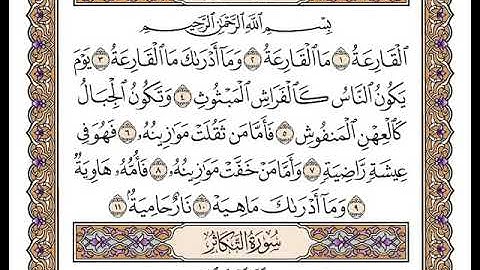 بِسْمِ اللَّهِ الرَّحْمَٰنِ الرَّحِيمِ
الْقَارِعَةُ ١ مَا الْقَارِعَةُ ٢ وَمَا أَدْرَىٰكَ مَا الْقَارِعَةُ ٣ يَوْمَ
يَكُونُ النَّاسُ كَالْفَرَاشِ الْمَبْثُوثِ ٤ وَتَكُونُ الْجِبَالُ
كَالْعِهْنِ الْمَنْفُوشِ ٥ فَأَمَّا مَن ثَقُلَتْ مَوَٰزِينُهُۥ ٦ فَهُوَ فِى
عِيشَةٍ رَّاضِيَةٍ ٧ وَأَمَّا مَنْ خَفَّتْ مَوَٰزِينُهُۥ ٨ فَأُمُّهُۥ هَاوِيَةٌ
٩ وَمَا أَدْرَىٰكَ مَا هِيَهْ ١٠ نَارٌ حَامِيَةٌ ١١
سُورَةُ التَّكَاثُرِ